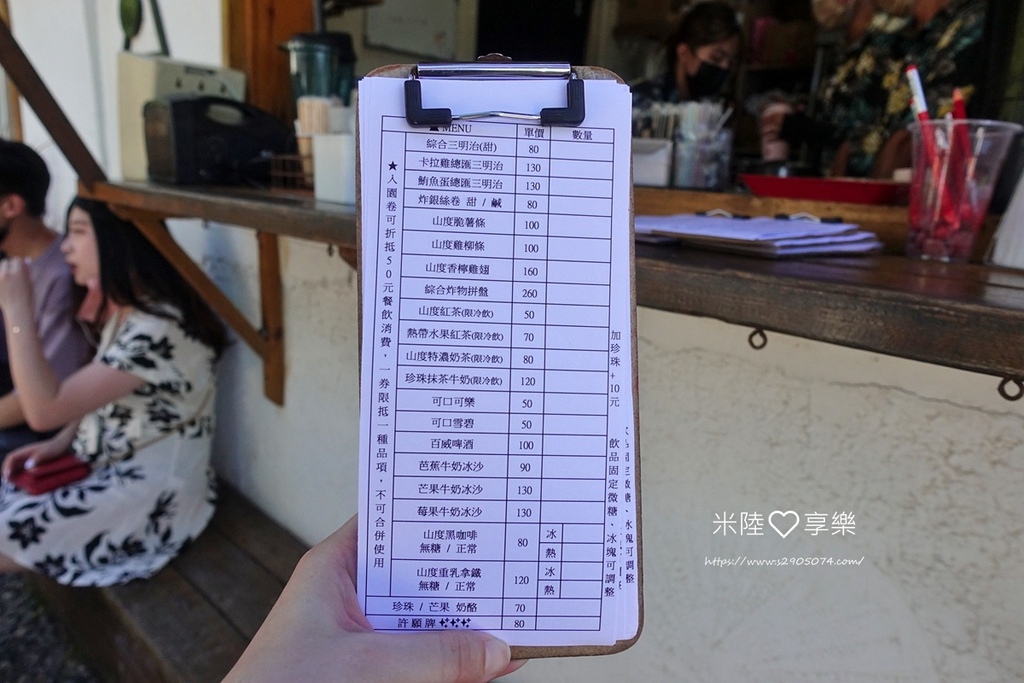 MENU 單價 數量
綜合三明治(甜) 80
卡拉雞總匯三明治 130
鮪魚蛋總匯三明治 130
炸銀絲卷 甜 / 鹹 80
山度脆薯條 100
山度雞柳條 100
山度香檸雞翅 160
綜合炸物拼盤 260
山度紅茶(限冷飲) 50
熱帶水果紅茶(限冷飲) 70
山度特濃奶茶(限冷飲) 80
珍珠抹茶牛奶(限冷飲) 120
可口可樂 50
可口雪碧 50
百威啤酒 100
芭蕉牛奶冰沙 90
芒果牛奶冰沙 130
莓果牛奶冰沙 130
山度黑咖啡
無糖 / 正常 80 冰
熱
山度重乳拿鐵
無糖 / 正常 120 冰
熱
珍珠 / 芒果 奶酪 70
許願牌 80
★入園卷可折抵50元餐飲消費，一券限抵一種品項，不可合併使用
加珍珠+10元 飲品固定微糖、冰塊可調整
米陸♡享樂
https://www.s2905074.com/